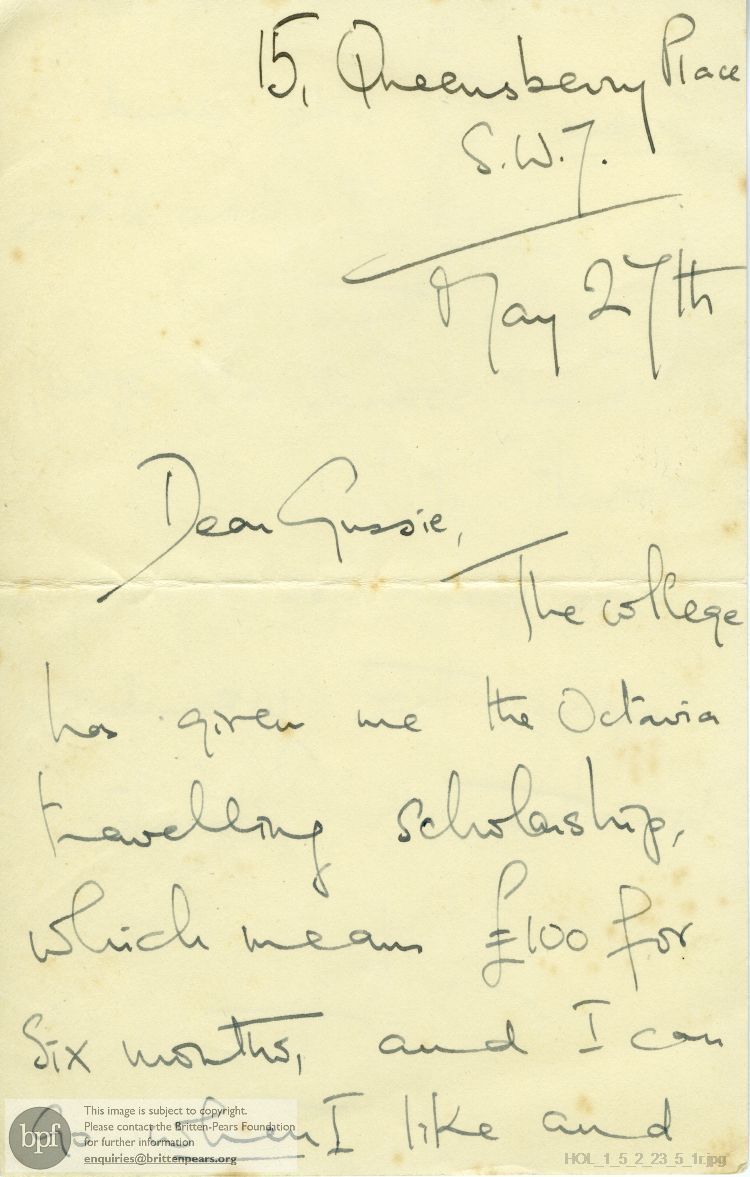 15, Queensberry Place
S.W.7.
May 27th
Dear Gussie,
The college
has given me the Octavia
travelling scholarship,
which means £100 for
six months, and I can
go when I like and
bpf
This image is subject to copyright.
Please contact the Britten-Pears Foundation
for further information
enquiries@brittenpears.org
HOL_1_5_2_23_5_1r.jpg